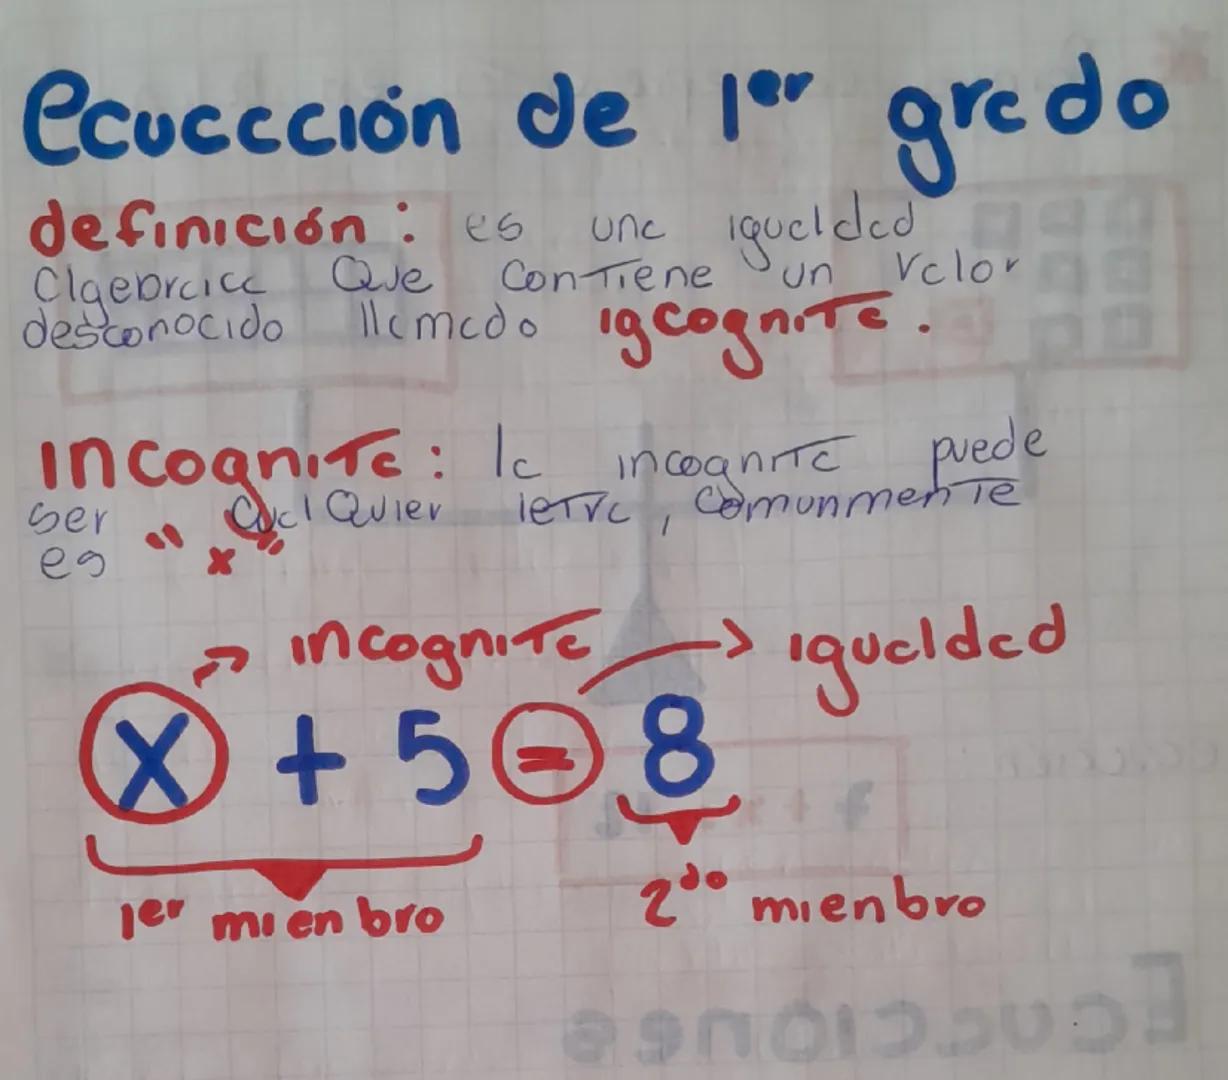 ecuaccción de 1er grado
definición: es una igualdad
algebraica Que contiene un valor
desconocido llamado igcognita.
incognita: la incognita puede
ser cualQuier letra, comunmente
es "x"
incognita
igualdad
x + 5 = 8
1er mienbro
2do mienbro
Ecuaciones